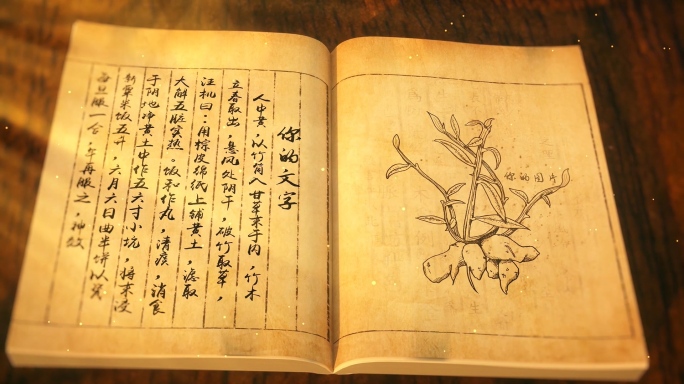 你的文字
人中黄，以竹筒入甘草末于内，竹木
立春取出，悬风处阴干，破竹取草，
汪机曰：用棕皮绵纸上铺黄土，滤取
大解五脏实热。饭和作丸，清痰，消食
于阴地净黄土中作五六寸小坑，将末没
新粟米饭五升，六月六日曲半饼以
每旦服一合，午再服之，神效
你的图片